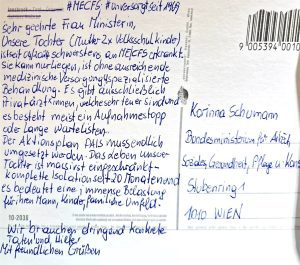 #MECFS #unversorgt seit 1969
Sehr geehrte Frau Ministerin,
Unsere Tochter (Mutter 2x Volksschulkinder)
ist seit schwerst an ME/CFS erkrankt.
Sie kann nur liegen, ist ohne ausreichende
medizinische Versorgung & spezialisierte
Behandlung. Es gibt ausschließlich
Privatärzt*innen, welche sehr teuer sind und
es besteht meist ein Aufnahmestopp
oder lange Wartelisten.
Der Aktionsplan DAIS muss endlich
umgesetzt werden. Das Leben unserer
Tochter ist massivst eingeschränkt -
komplette Isolation seit 20 Monaten und
es bedeutet eine immense Belastung
für ihren Mann, Kinder, familiäre Umfeld.
Wir brauchen dringend konkrete
Taten und Hilfe!
Mit freundlichen Grüßen
10-2036
9005394001
Korinna Schumann
Bundesministerium für Arbeit,
Soziales, Gesundheit, Pflege u. Kons
Stubenring 1
1010 WIEN